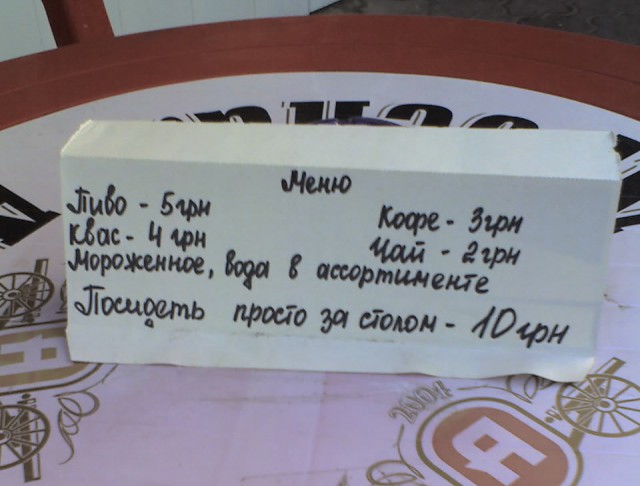 Меню
Пиво - 5грн
Кофе - 3грн
Квас - 4 грн
Чай - 2грн
Мороженное, вода в ассортименте
Посидеть просто за столом - 10грн
2004
Я